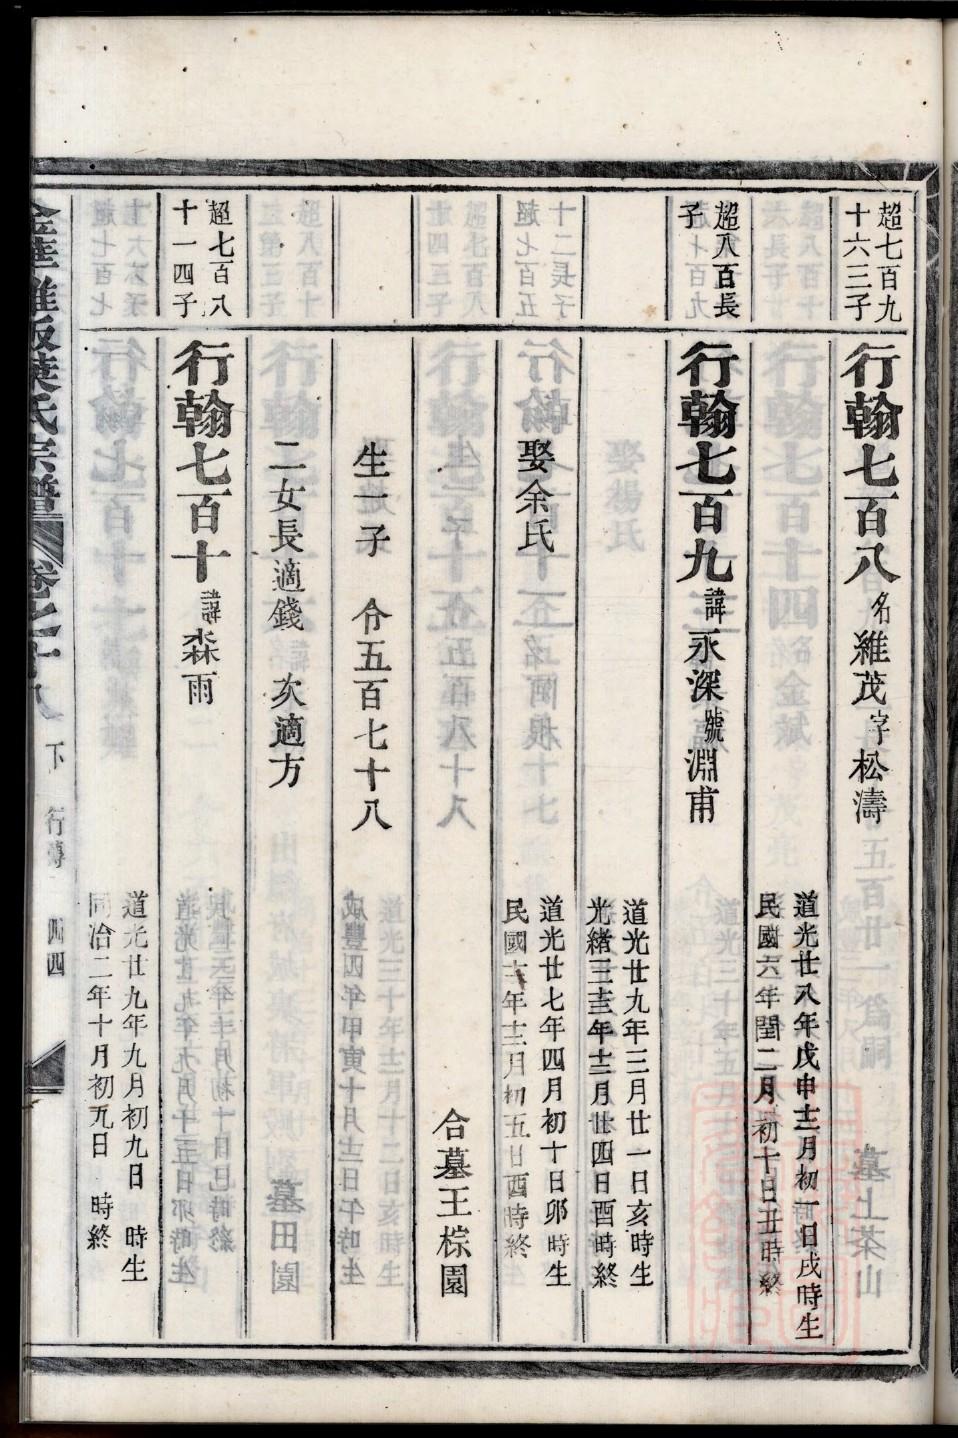 超七百九
十六三子
行翰七百八名維茂字松濤
道光廿八年戊申十二月初一日戌時生
民國六年閏二月初十日丑時終
超八百長
子
行翰七百九諱永深號淵甫
道光廿九年三月廿一日亥時生
光緒三十三年十二月廿四日酉時終
娶余氏
道光廿七年四月初十日卯時生
年十二月初五日酉時終
合墓王棕園
生一子　令五百七十八
二女長適錢　次適方
超七百八
十一四子
行翰七百十諱森雨
道光廿九年九月初九日　時生
同治二年十月初九日　時終
葉氏宗譜
卷之十八
下
行傳
四四